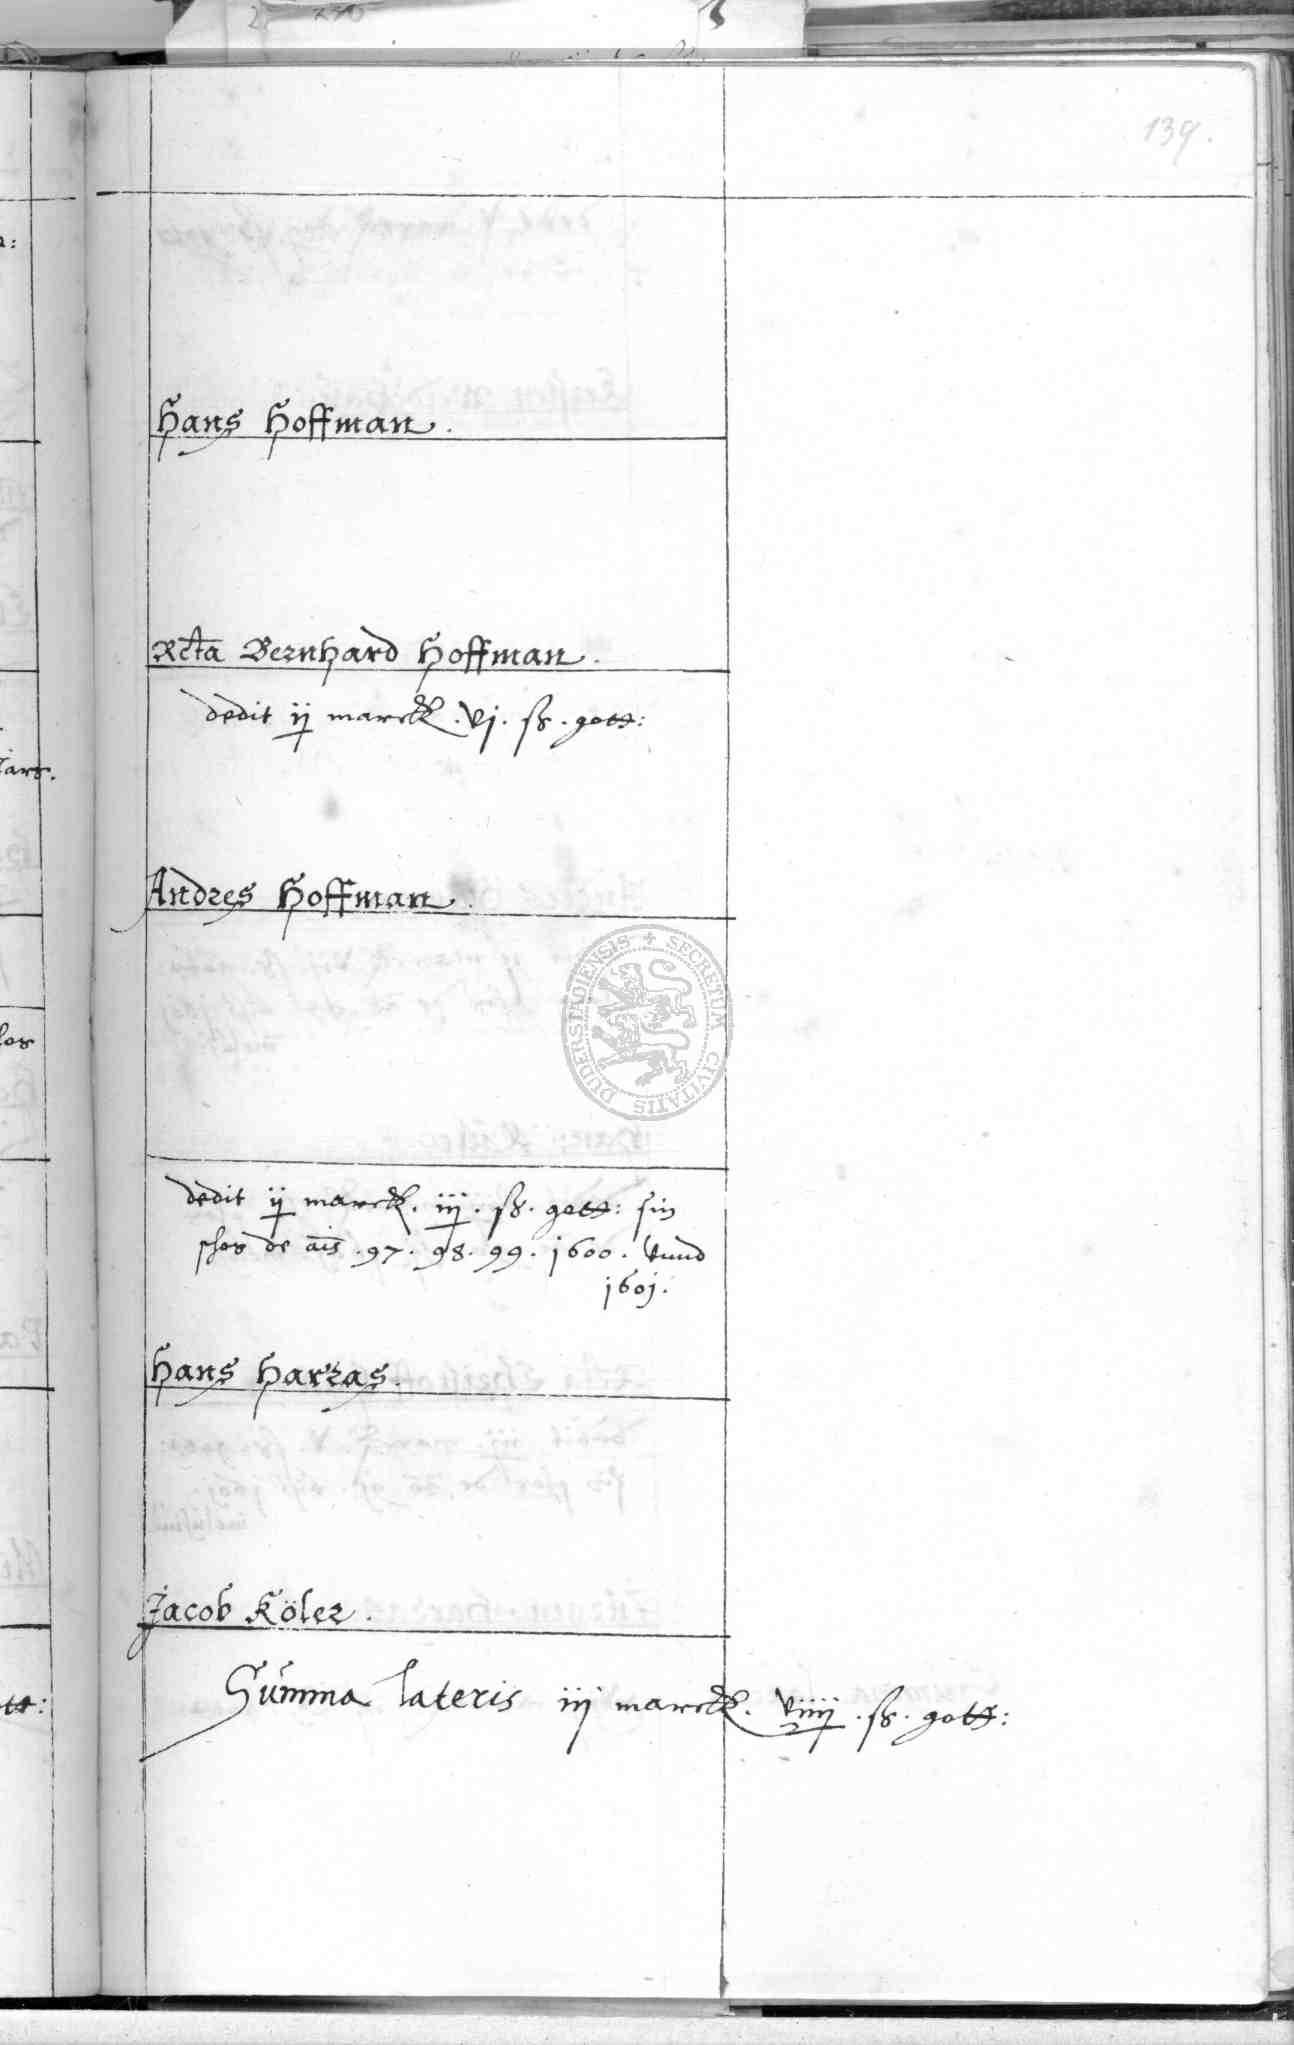 139.
Hans Hoffman.
Rcta Bernhard Hoffman.
dedit ij marck. vj. ß. gott:
Andres Hoffman.
SECRETUM CIVITATIS DUDERSTADIENSIS
dedit ij marck. iij. ß. gott: sin
schos de ais. 97. 98. 99. 1600. vnnd
1601.
Hans Harras.
Jacob Köler.
Summa lateris iij marck. viiij. ß. gott: